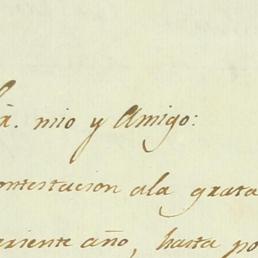 mio y Amigo:
contestacion ala grata
corriente año, hasta